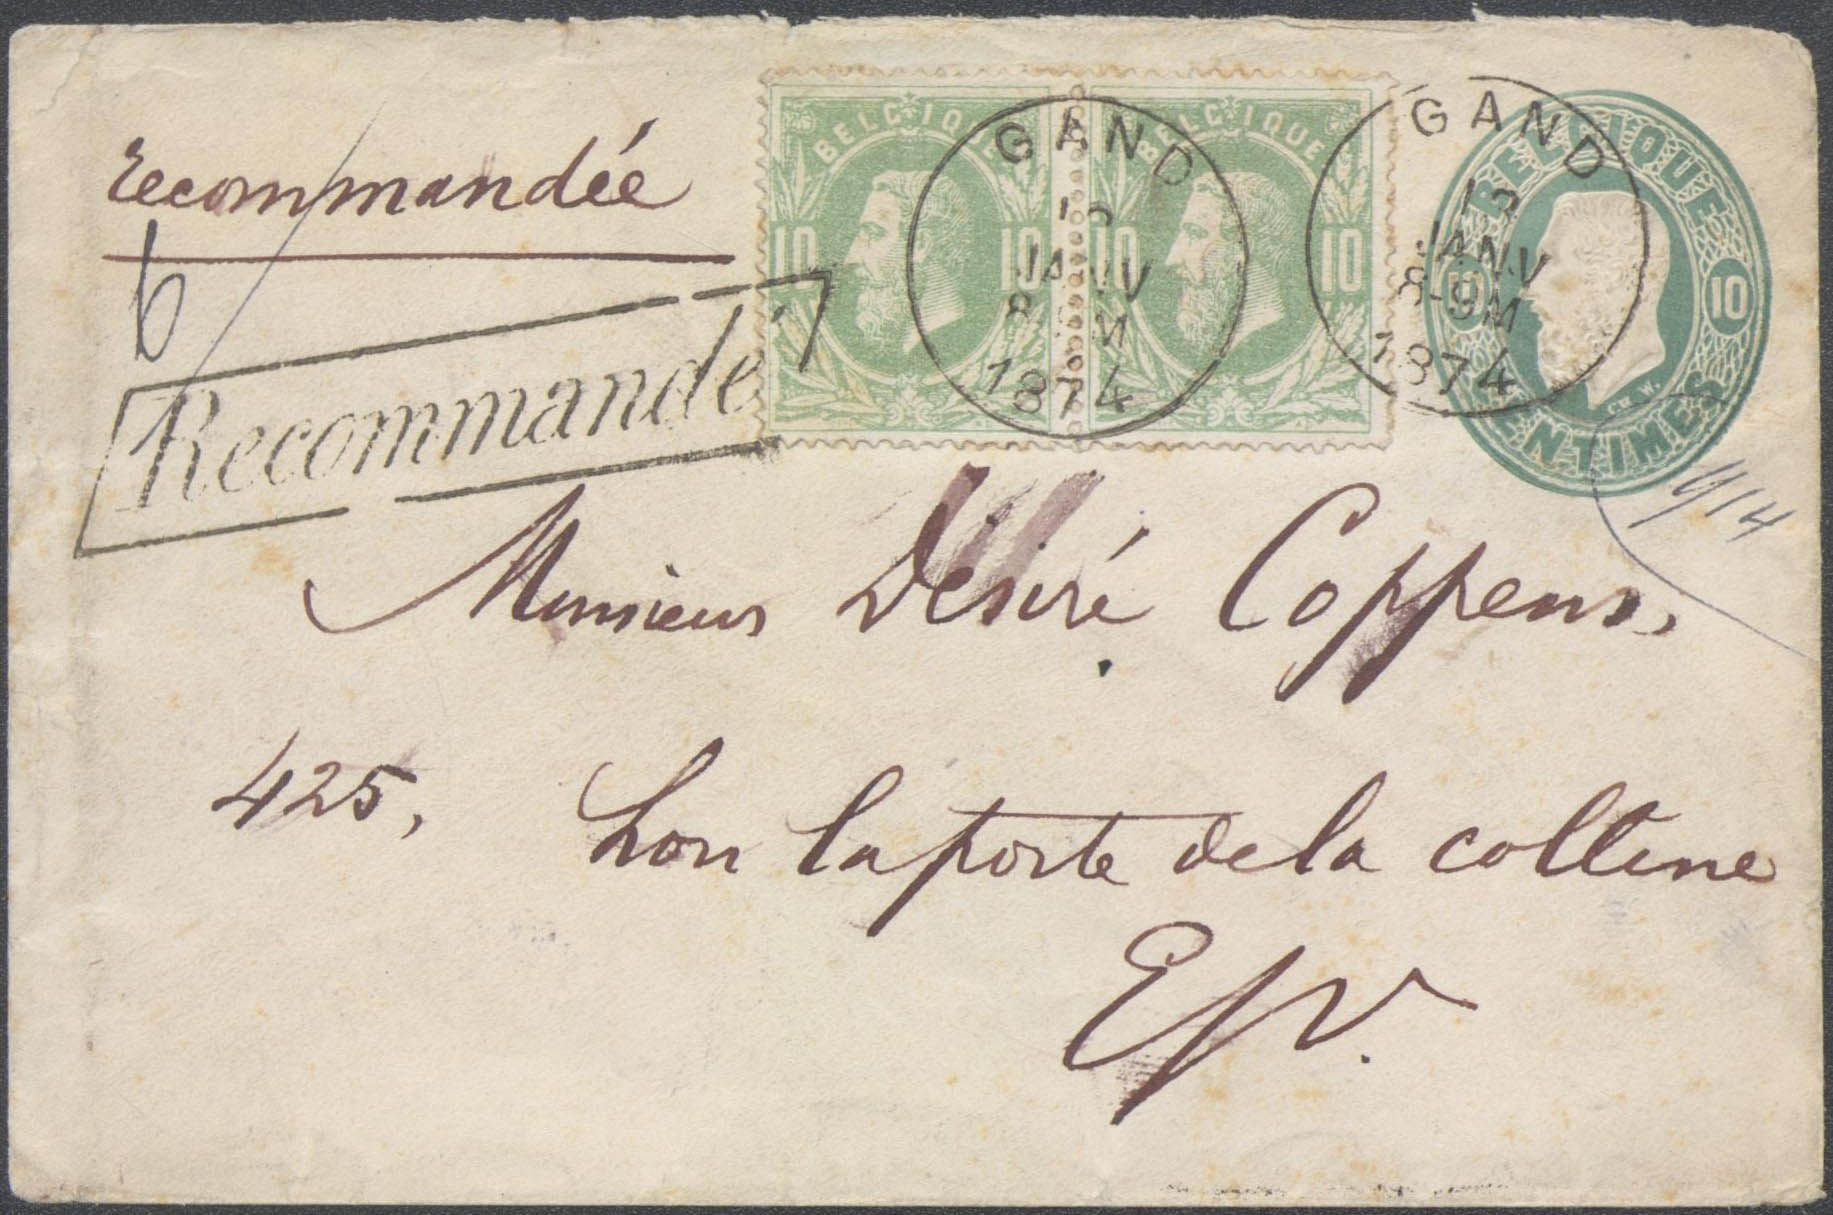 recommandée
6
Recommandé
BELGIQUE BELGIQUE
10 10 10 10
GAND
JANV
8 9M
1874
GAND
13
JANV
8-9M
1874
BELGIQUE
10 10
CH. W.
CENTIMES
Monsieur Désiré Coppens,
425, hors la porte de la colline
E/V.